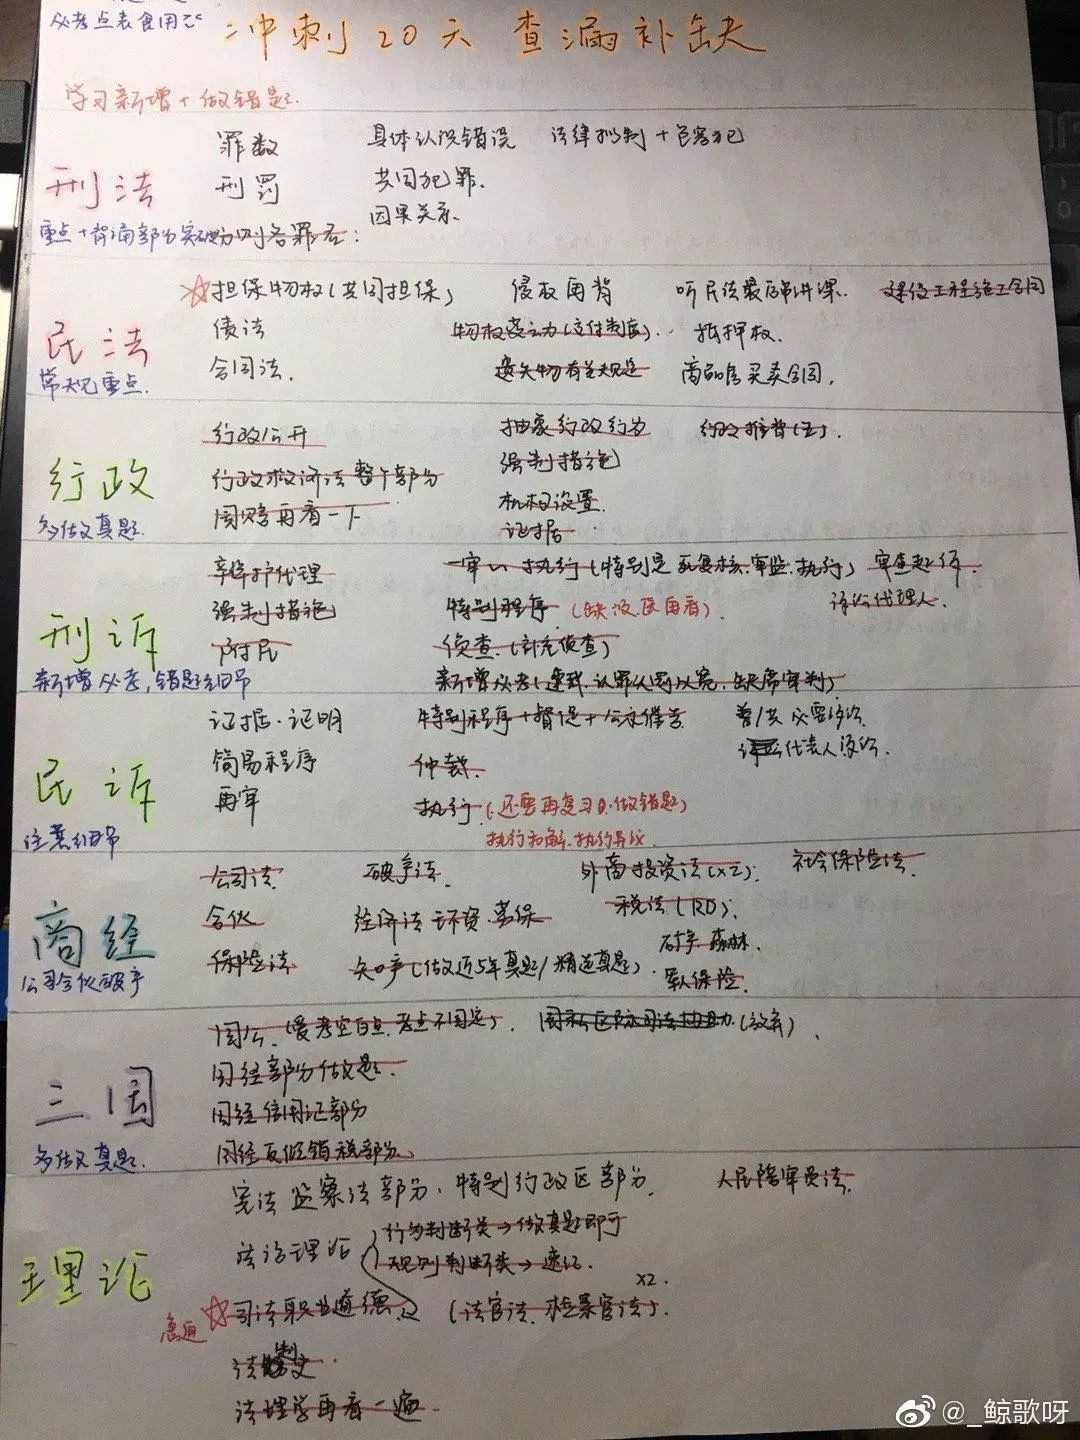 必考点表食用
冲刺20天 查漏补缺
学习新增+做错题.
罪数 具体认识错误 法律拟制+危害犯
刑法 刑罚 共同犯罪.
因果关系.
重点+背诵部分 分则各罪名:
☆担保物权(共同担保) 侵权再背 听民法最后串讲课. 建设工程施工合同
债法 物权变动(交付制度). 抵押权.
民法 合同法. 遗失物有关规定 商品房买卖合同.
常规重点.
行政公开 抽象行政行为 行政推普(五).
强制措施
行政 行政救济法整个部分 机构设置.
多做真题. 国赔再看一下 证据.
辩护代理 一审以执行(特别是死复核.审监.执行) 审查起诉.
强制措施 特别程序.(缺没.医再看) 诉讼代理人.
刑诉 附民 侦查.(补充侦查)
新增必考,错题细节 新增必考(速裁.认罪认罚从宽.缺席审判)
证据.证明 特别程序+督促+公示催告 普/共 必要诉讼.
简易程序 仲裁. 代表人诉讼.
民诉 再审 执行(还要再复习.做错题)
注意细节 执行和解.执行异议
公司法. 破产法. 外商投资法(x2). 社会保险法.
合伙 经济法 环资.劳保 税法(RD).
商经 保险法 知产(做近5年真题/精选真题). 矿产 森林.
公司合伙破产 军人保险.
国公(爱考空白点.考点不固定). 国私区际司法协助(效弃).
国经部分做题.
三国 国经信用证部分
多做真题. 国经反倾销税部分.
宪法 监察法部分.特别行政区部分. 人民陪审员法.
法治理论 行为判断类→做真题即可
理论 规则判断类→速记.
急迫 ☆司法职业道德 (法官法.检察官法). x2.
法制史
法理学再看一遍
@_鲸歌呀